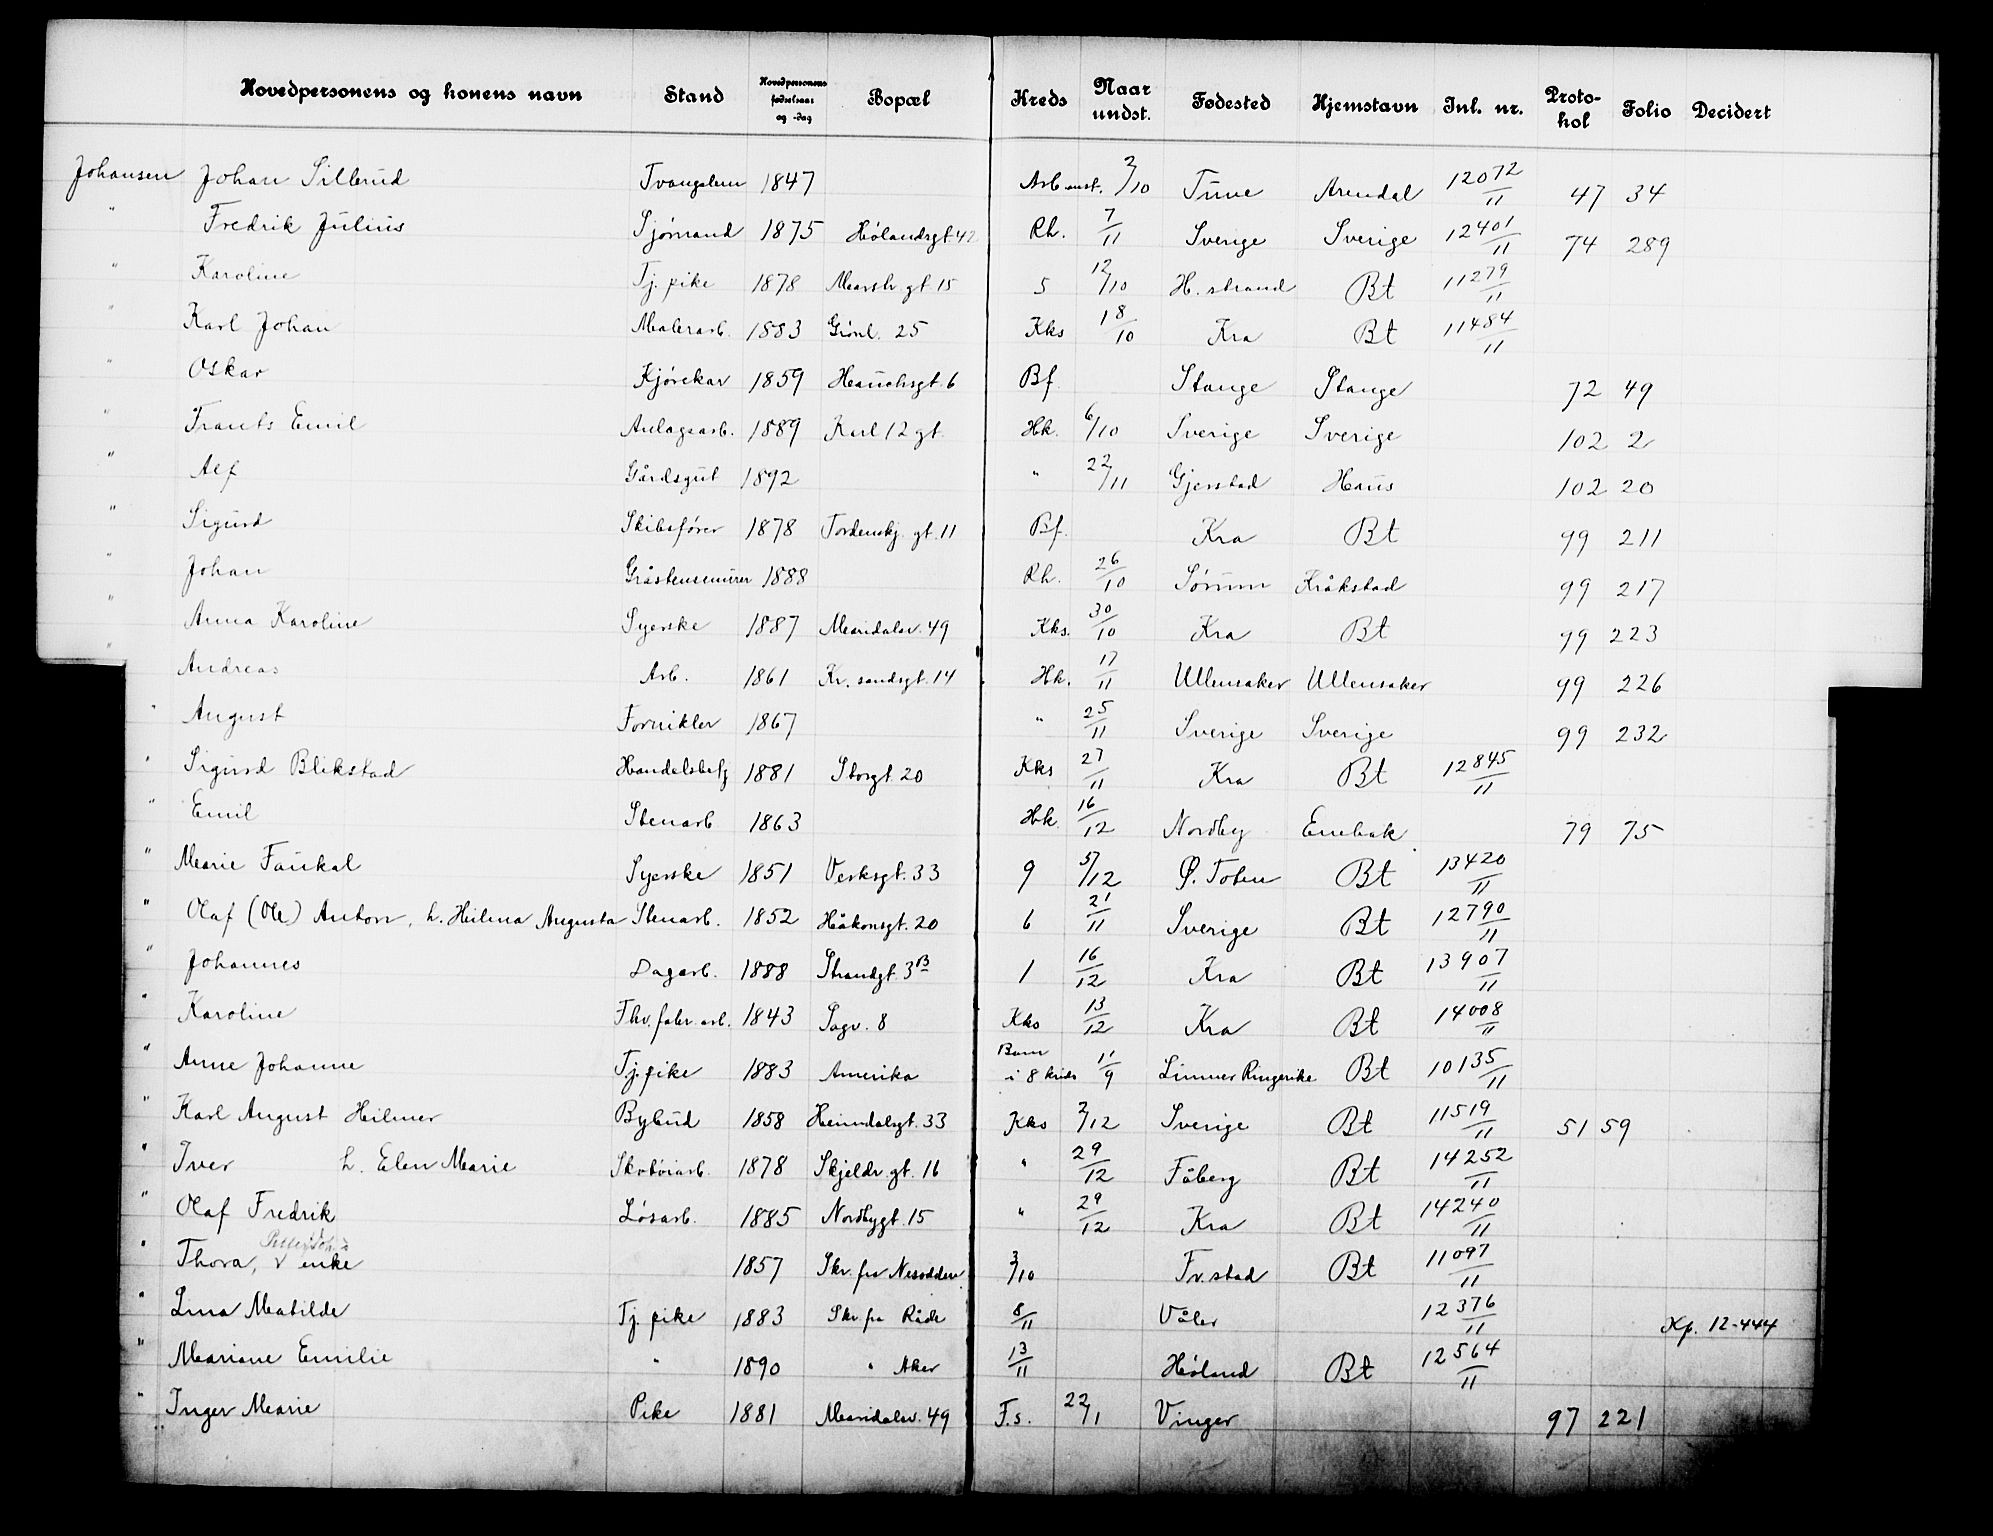 Hovedpersonens og konens navn Stand Hovedpersonens fødselsaar og -dag Bopæl Kreds Naar undst. Fødested Hjemstavn Inl. nr. Protokol Folio Decidert
Johansen Johan Sillerud Tvangslem 1847 Arb.anst. 2/10 Tune Arendal 12072/11 47 34
" Fredrik Julius Sjømand 1875 Hølandsgt 42 Rh. 7/11 Sverige Sverige 12401/11 74 289
" Karoline Tj. pike 1878 gt. 15 5 12/10 H. strand Bt 11279/11
" Karl Johan Malerarb. 1883 Grønl. 25 Kks 18/10 Kra Bt 11484/11
" Oskar Kjørekar 1859 Hauchsgt. 6 Bf. Stange Stange 72 49
" Frants Emil Anlagsarb. 1889 Karl 12 gt. Hk. 6/10 Sverige Sverige 102 2
" Alf Gårdsgut 1892 " 22/11 Gjerstad Haus 102 20
" Sigurd Skibsfører 1878 Tordenskj. gt. 11 Bf. Kra Bt 99 211
" Johan Gråstensmurer 1888 Rh. 26/10 Sørum Kråkstad 99 217
" Anna Karoline Syerske 1887 Maridalsv. 49 Kks. 30/10 Kra Bt 99 223
" Andreas Arb. 1861 Kr. sandsgt. 14 Hk. 17/11 Ullensaker Ullensaker 99 226
" August Fornikler 1867 " 25/11 Sverige Sverige 99 232
" Sigurd Blikstad Handelsbetj 1881 Storgt. 20 Kks 27/11 Kra Bt 12845/11
" Emil Stenarb 1863 Hk. 16/12 Nordby Enebak 79 75
" Marie Faukal Syerske 1851 Verksgt. 33 9 5/12 Ø. Toten Bt 13420/11
" Olaf (Ole) Anton, h. Hilma Augusta Stenarb. 1852 Håkonsgt. 20 6 21/11 Sverige Bt 12790/11
" Johannes Dagarb. 1888 Strandgt. 3B 1 16/12 Kra Bt 13907/11
" Karoline Fhv. fabr. arb. 1843 Sagv. 8 Kks 13/12 Kra Bt 14008/11
" Anne Johanne Tj. pike 1883 Amerika Barn i 8 kreds 11/9 Ringerike Bt 10135/11
" Karl August Hilmer Bybud 1858 Heimdalsgt. 33 Kks 2/12 Sverige Bt 11519/11 51 59
" Iver h. Elen Marie Skotøiarb. 1878 Skjeldr. gt. 16 " 29/12 Fåberg Bt 14252/11
" Olaf Fredrik Løsarb. 1885 Nordbygt. 15 " 29/12 Kra Bt 14240/11
" Thora, enke 1857 Skr. fra Nesodden 3/10 Fr. stad Bt 11097/11
" Lina Matilde Tj. pike 1883 Skr. fra Råde 8/11 Våler 12376/11 Kp. 12-444
" Mariane Emilie " 1890 " Aker 13/11 Høland Bt 12564/11
" Inger Marie Pike 1881 Maridalsv. 49 F.s. 22/1 Vinger 97 221